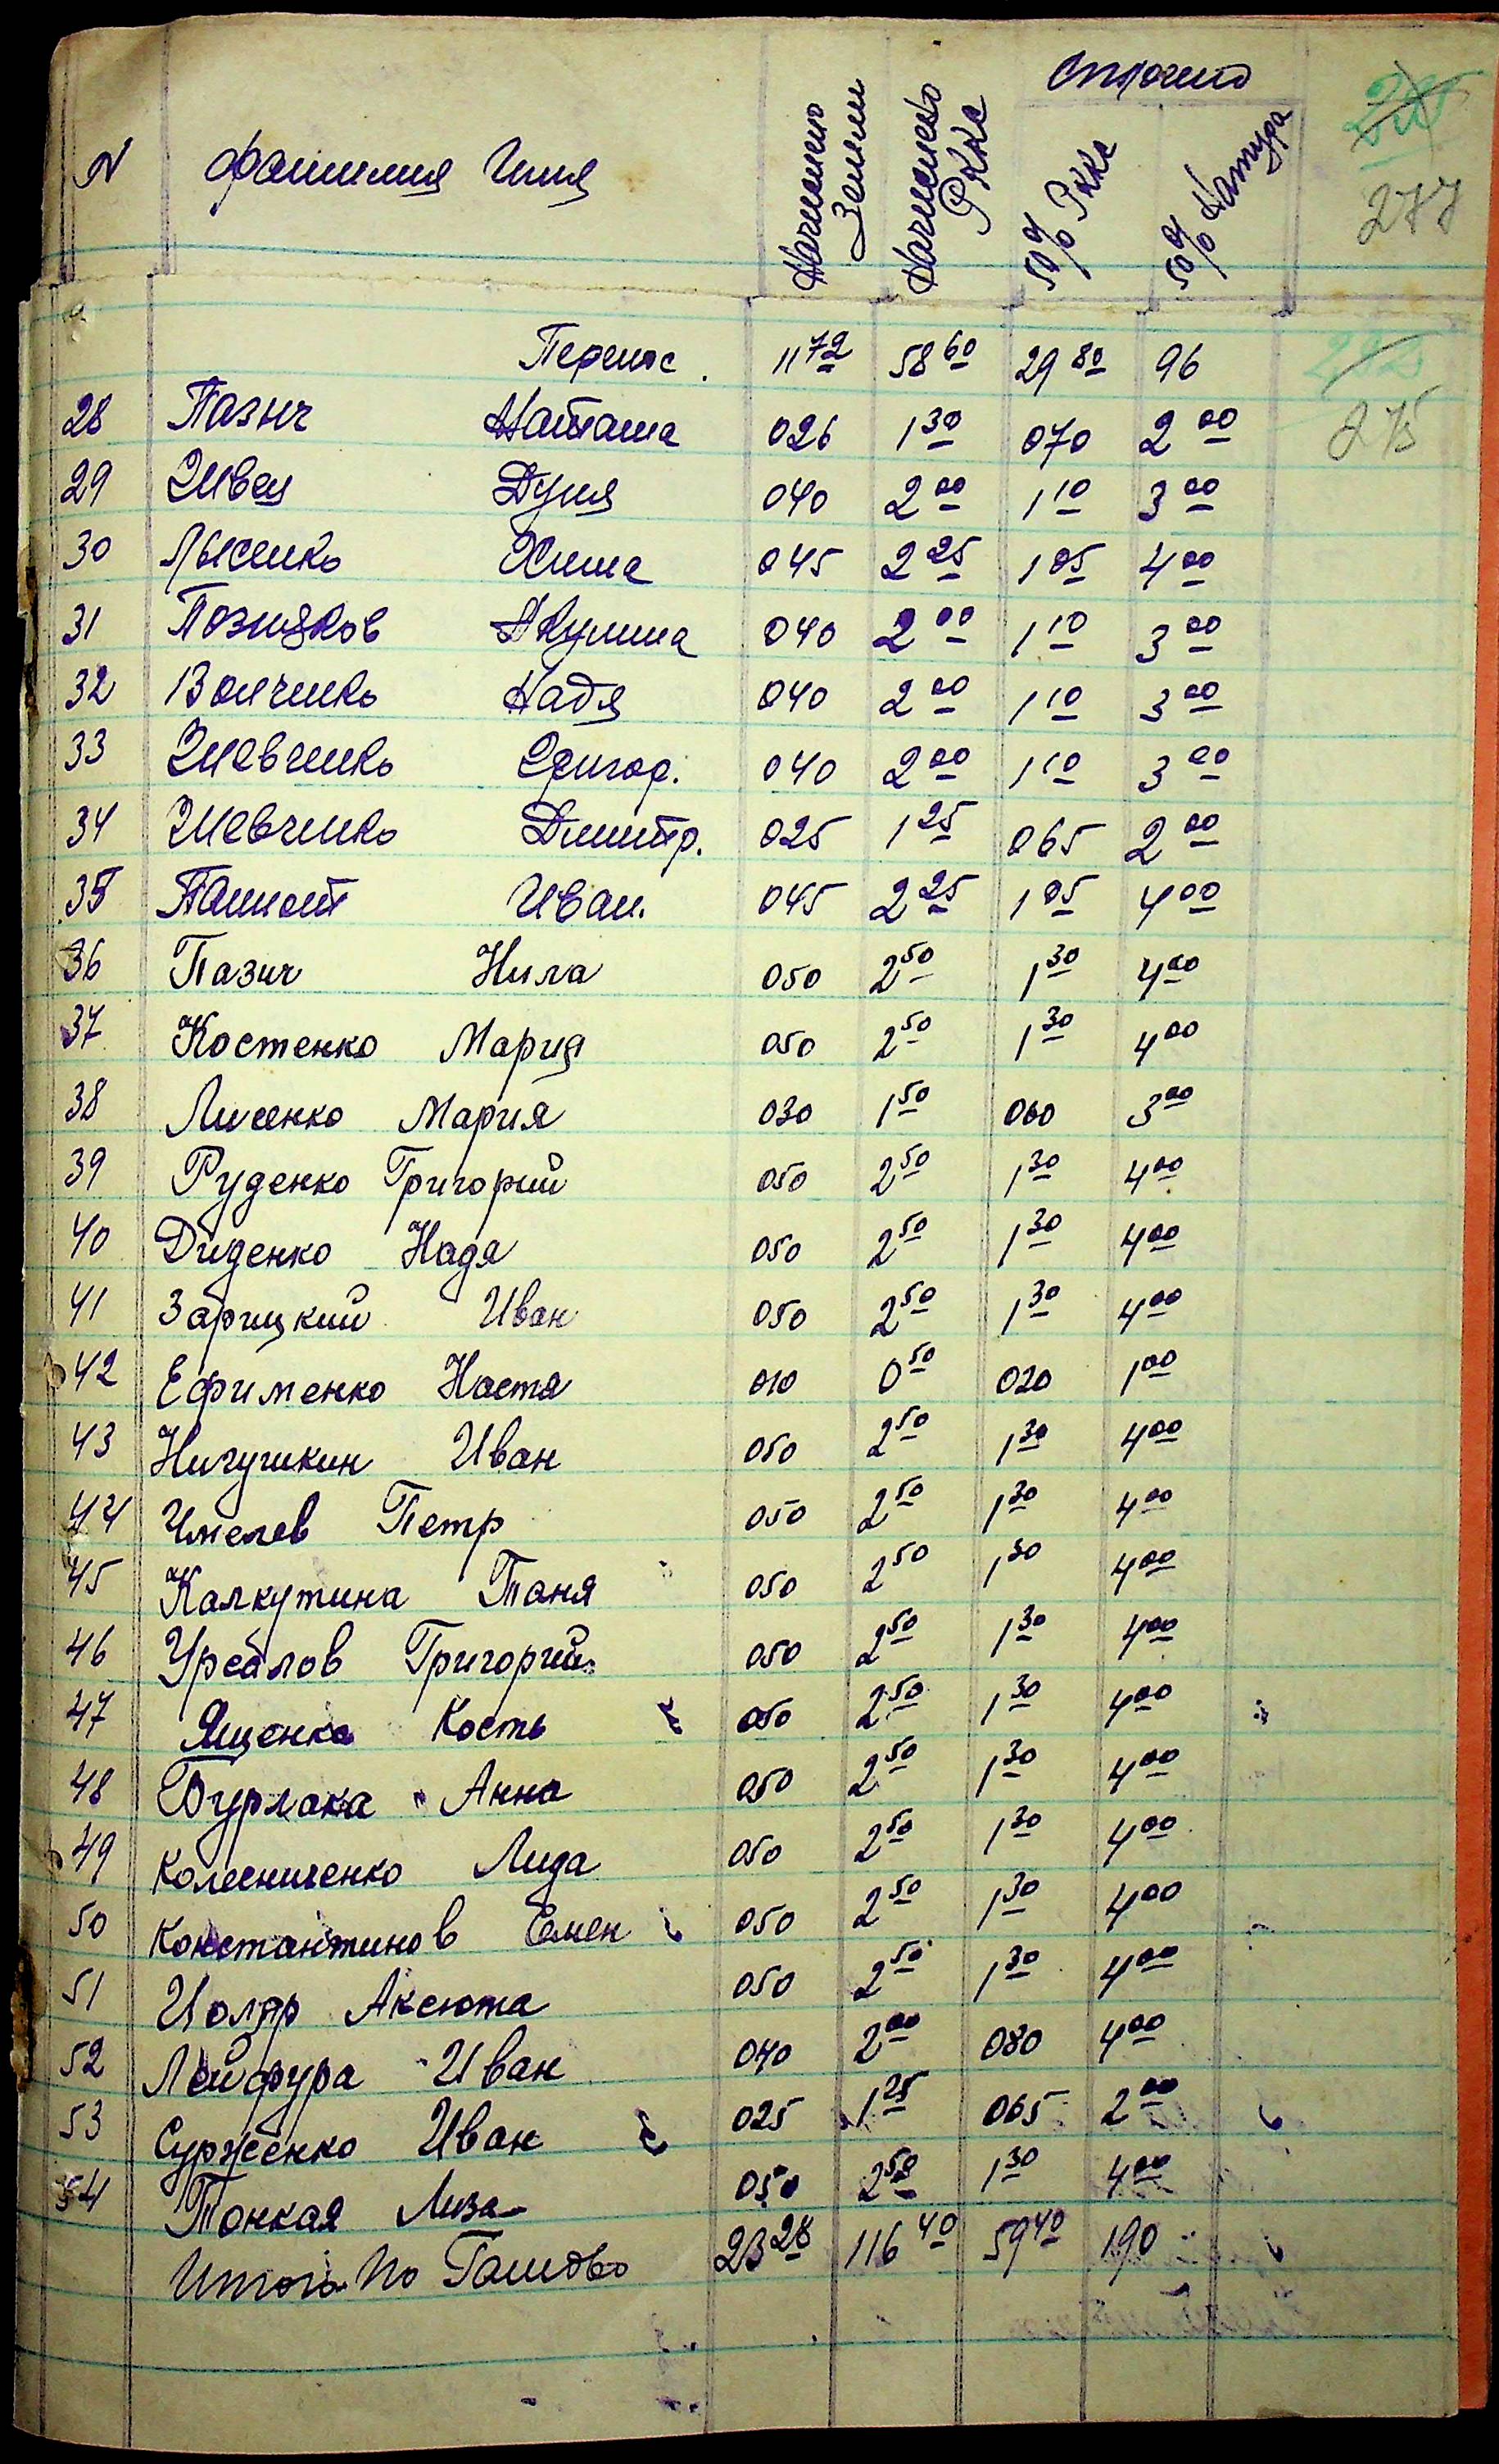 N Фамилия Имя Начислено Земли Начислено РККА Оплочено 50% РККА 50% Натура
277
Перенос 11 72 58 60 29 80 96
275
28 Пазич Наташа 026 1 30 070 2 00
29 Швец Дуня 040 2 00 1 10 3 00
30 Лысенко Хима 045 2 25 1 05 4 00
31 Позняков Акулина 040 2 00 1 10 3 00
32 Волченко Надя 040 2 00 1 10 3 00
33 Шевченко Григор. 040 2 00 1 10 3 00
34 Шевченко Дмитр. 025 1 25 065 2 00
35 Иван. 045 2 25 1 05 4 00
36 Пазич Нила 050 2 50 1 30 4 00
37 Костенко Мария 050 2 50 1 30 4 00
38 Лисенко Мария 030 1 50 060 3 00
39 Руденко Григорий 050 2 50 1 30 4 00
40 Диденко Надя 050 2 50 1 30 4 00
41 Зарицкий Иван 050 2 50 1 30 4 00
42 Ефименко Настя 010 0 50 020 1 00
43 Ничушкин Иван 050 2 50 1 30 4 00
44 Петр 050 2 50 1 30 4 00
45 Калкутина Таня 050 2 50 1 30 4 00
46 Григорий 050 2 50 1 30 4 00
47 Ященко Кость 050 2 50 1 30 4 00
48 Бурлака Анна 050 2 50 1 30 4 00
49 Колесниченко Лида 050 2 50 1 30 4 00
50 Константинов Семен 050 2 50 1 30 4 00
51 Аксюта 050 2 50 1 30 4 00
52 Лейфура Иван 040 2 00 080 4 00
53 Сурженко Иван 025 1 25 065 2 00
54 Тонкая Лиза 050 2 50 1 30 4 00
Итого по 23 28 116 40 59 40 190